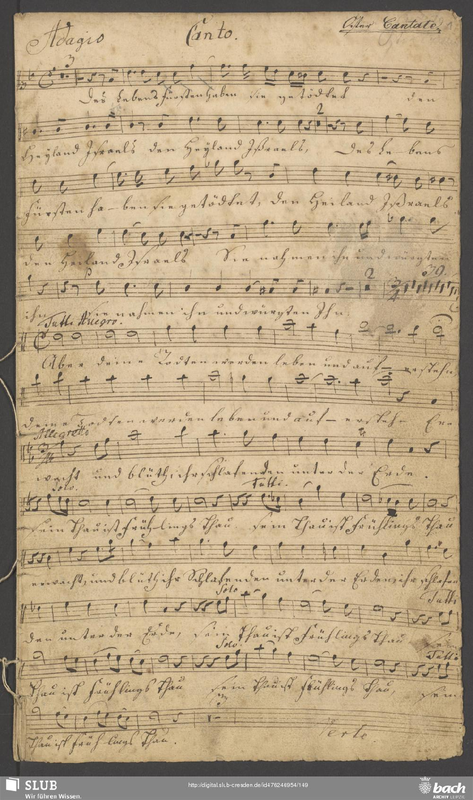 Adagio Canto. Oster Cantate
Des Lebens Fürsten haben sie getödtet den
Heyland Israels den Heyland Israels, des Lebens
Fürsten haben sie getödtet, den Heiland Israels
den Heiland Israels Sie nahmen ihn und würgten
ihn, Sie nahmen ihn und würgten Ihn
Tutti Allegro.
Aber deine Todten werden leben und auf-erstehn
deine Todten werden leben und auf-erstehn Er-
Allegretto
wacht und blüht, ihr schlafenden unter der Erde.
Solo. Tutti.
sein Thau ist Frühlings Thau sein Thau ist Frühlings Thau
erwacht, und blüht ihr Schlafenden unter der Erden, ihr schlafen
Solo Tutti
den unter der Erde, sein Thau ist Frühlings Thau
Solo. Tutti
Thau ist Frühlings Thau sein Thau ist Frühlings Thau, sein
Thau ist Früh-lings Thau.
SLUB
Wir führen Wissen.
http://digital.slub-dresden.de/id476246954/149
bach